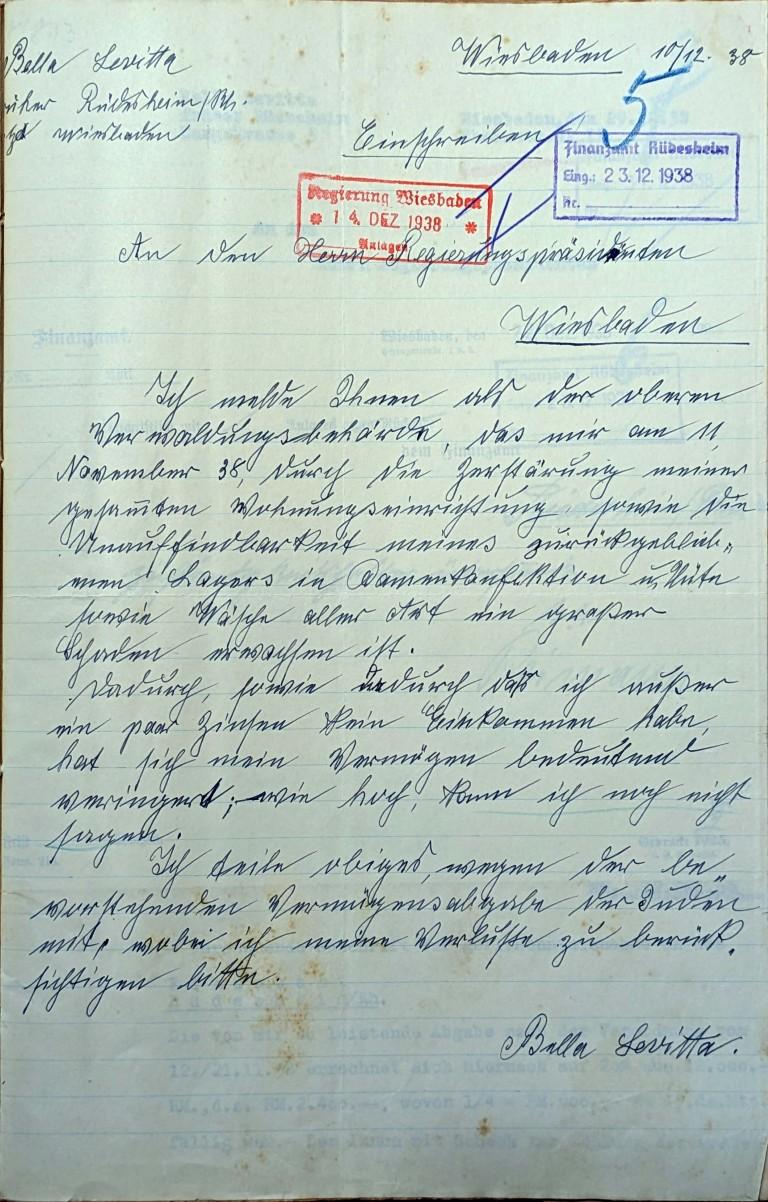 Bella Levitta
Wiesbaden 10/12. 38
früher Rüdesheim/Rh.
jetzt Wiesbaden
5
Einschreiben
Finanzamt Rüdesheim
Eing.: 23.12.1938
Nr.
Regierung Wiesbaden
* 14. DEZ 1938 *
Anlagen
An den Herrn Regierungspräsidenten
Wiesbaden
Ich melde Ihnen als der oberen
Verwaldungsbehörde, das mir am 11
November 38, durch die Zerstärung meiner
gesamten Wohnungseinrichtung sowie die
Unauffindbarkeit meines zurückgeblieb-
enen Lagers in Damenkonfektion u. Hüte
sowie Wäsche aller Art ein großer
Schaden erwachsen ist.
Dadurch, sowie dadurch daß ich außer
ein paar Zinsen kein Einkommen habe,
hat sich mein Vermögen bedeutend
veringert; wie hoch, kann ich noch nicht
sagen.
Ich teile obiges, wegen der be-
vorstehenden Vermögensabgabe der Juden
mit, wobei ich meine Verluste zu berück-
sichtigen bitte.
Bella Levitta.